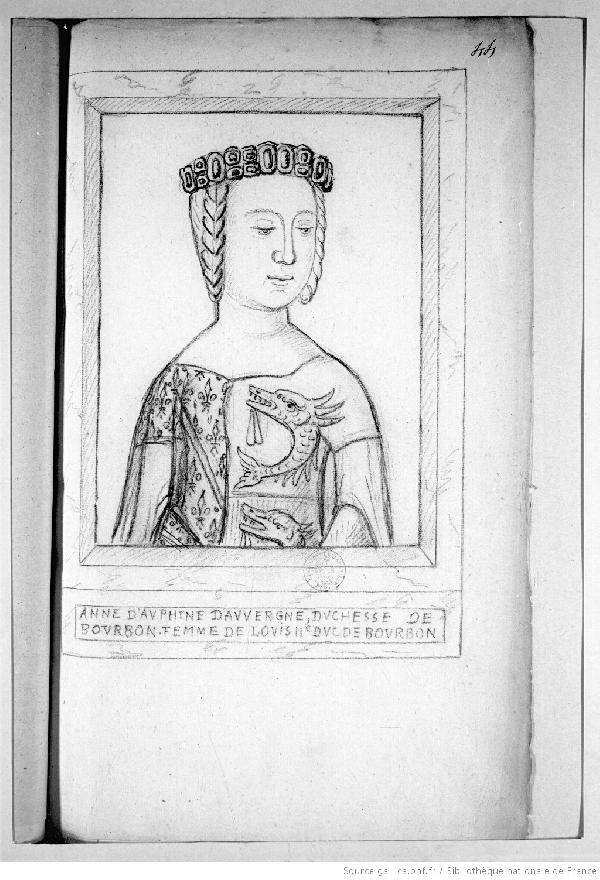 ANNE D'AVPHINE DAVVERGNE, DVCHESSE DE
BOVRBON. FEMME DE LOVIS IIe DVC DE BOVRBON
Source gallica.bnf.fr / Bibliothèque nationale de France